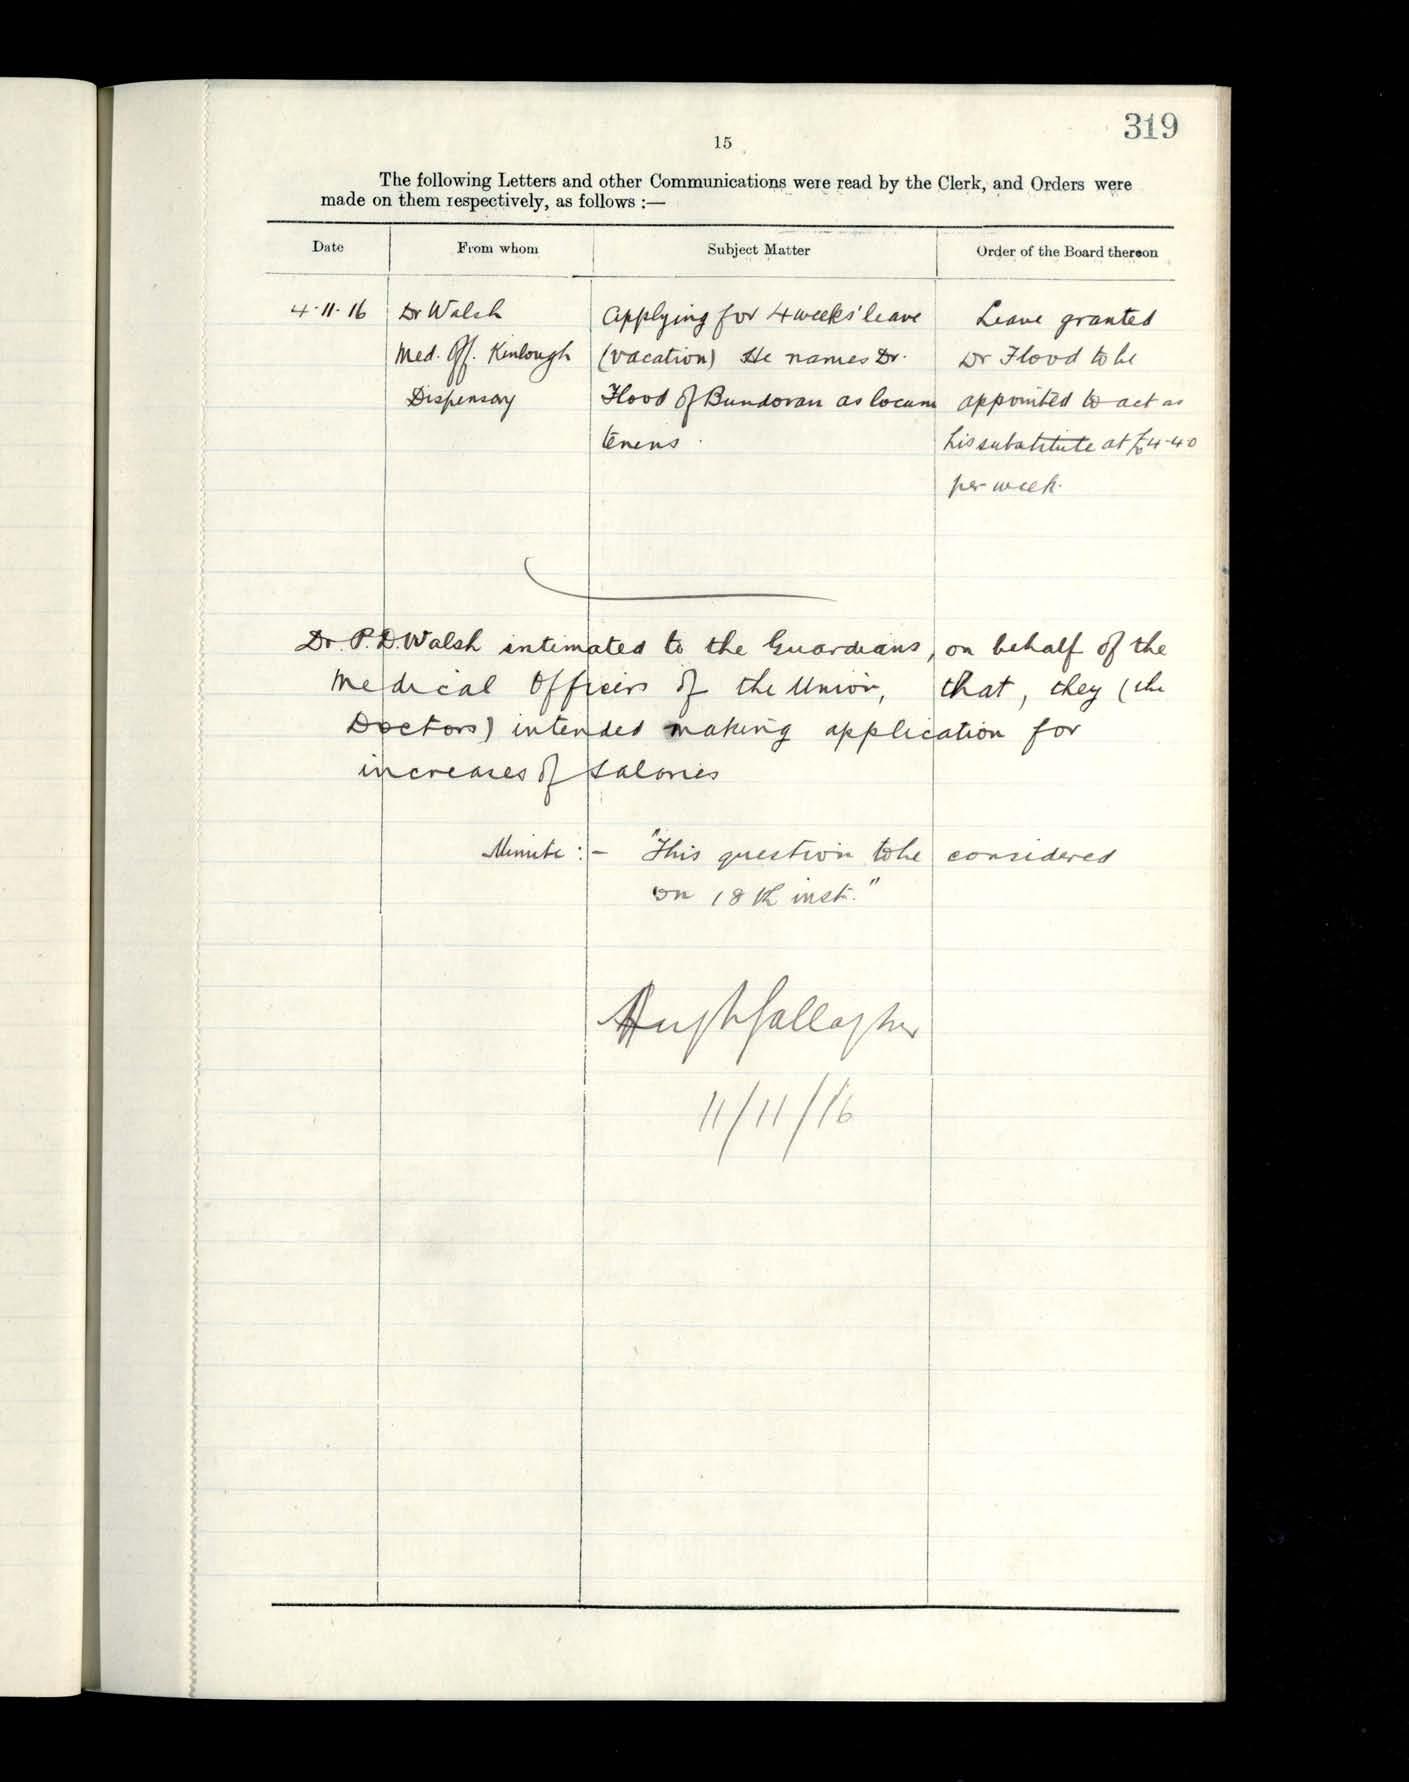 319
15
The following Letters and other Communications were read by the Clerk, and Orders were
made on them respectively, as follows :—
Date From whom Subject Matter Order of the Board thereon
4-11-16 Dr Walsh Applying for 4 weeks' leave Leave granted
Med. Off. Kinlough (vacation) He names Dr. Dr Flood to be
Dispensary Flood of Bundoran as locum appointed to act as
tenens. his substitute at £4-4-0
per week.
Dr. P. D. Walsh intimated to the Guardians, on behalf of the
Medical Officers of the Union, that, they (the
Doctors) intended making application for
increases of salaries
Minute :- "This question to be considered
on 18th inst."
Hugh Gallagher
11/11/16